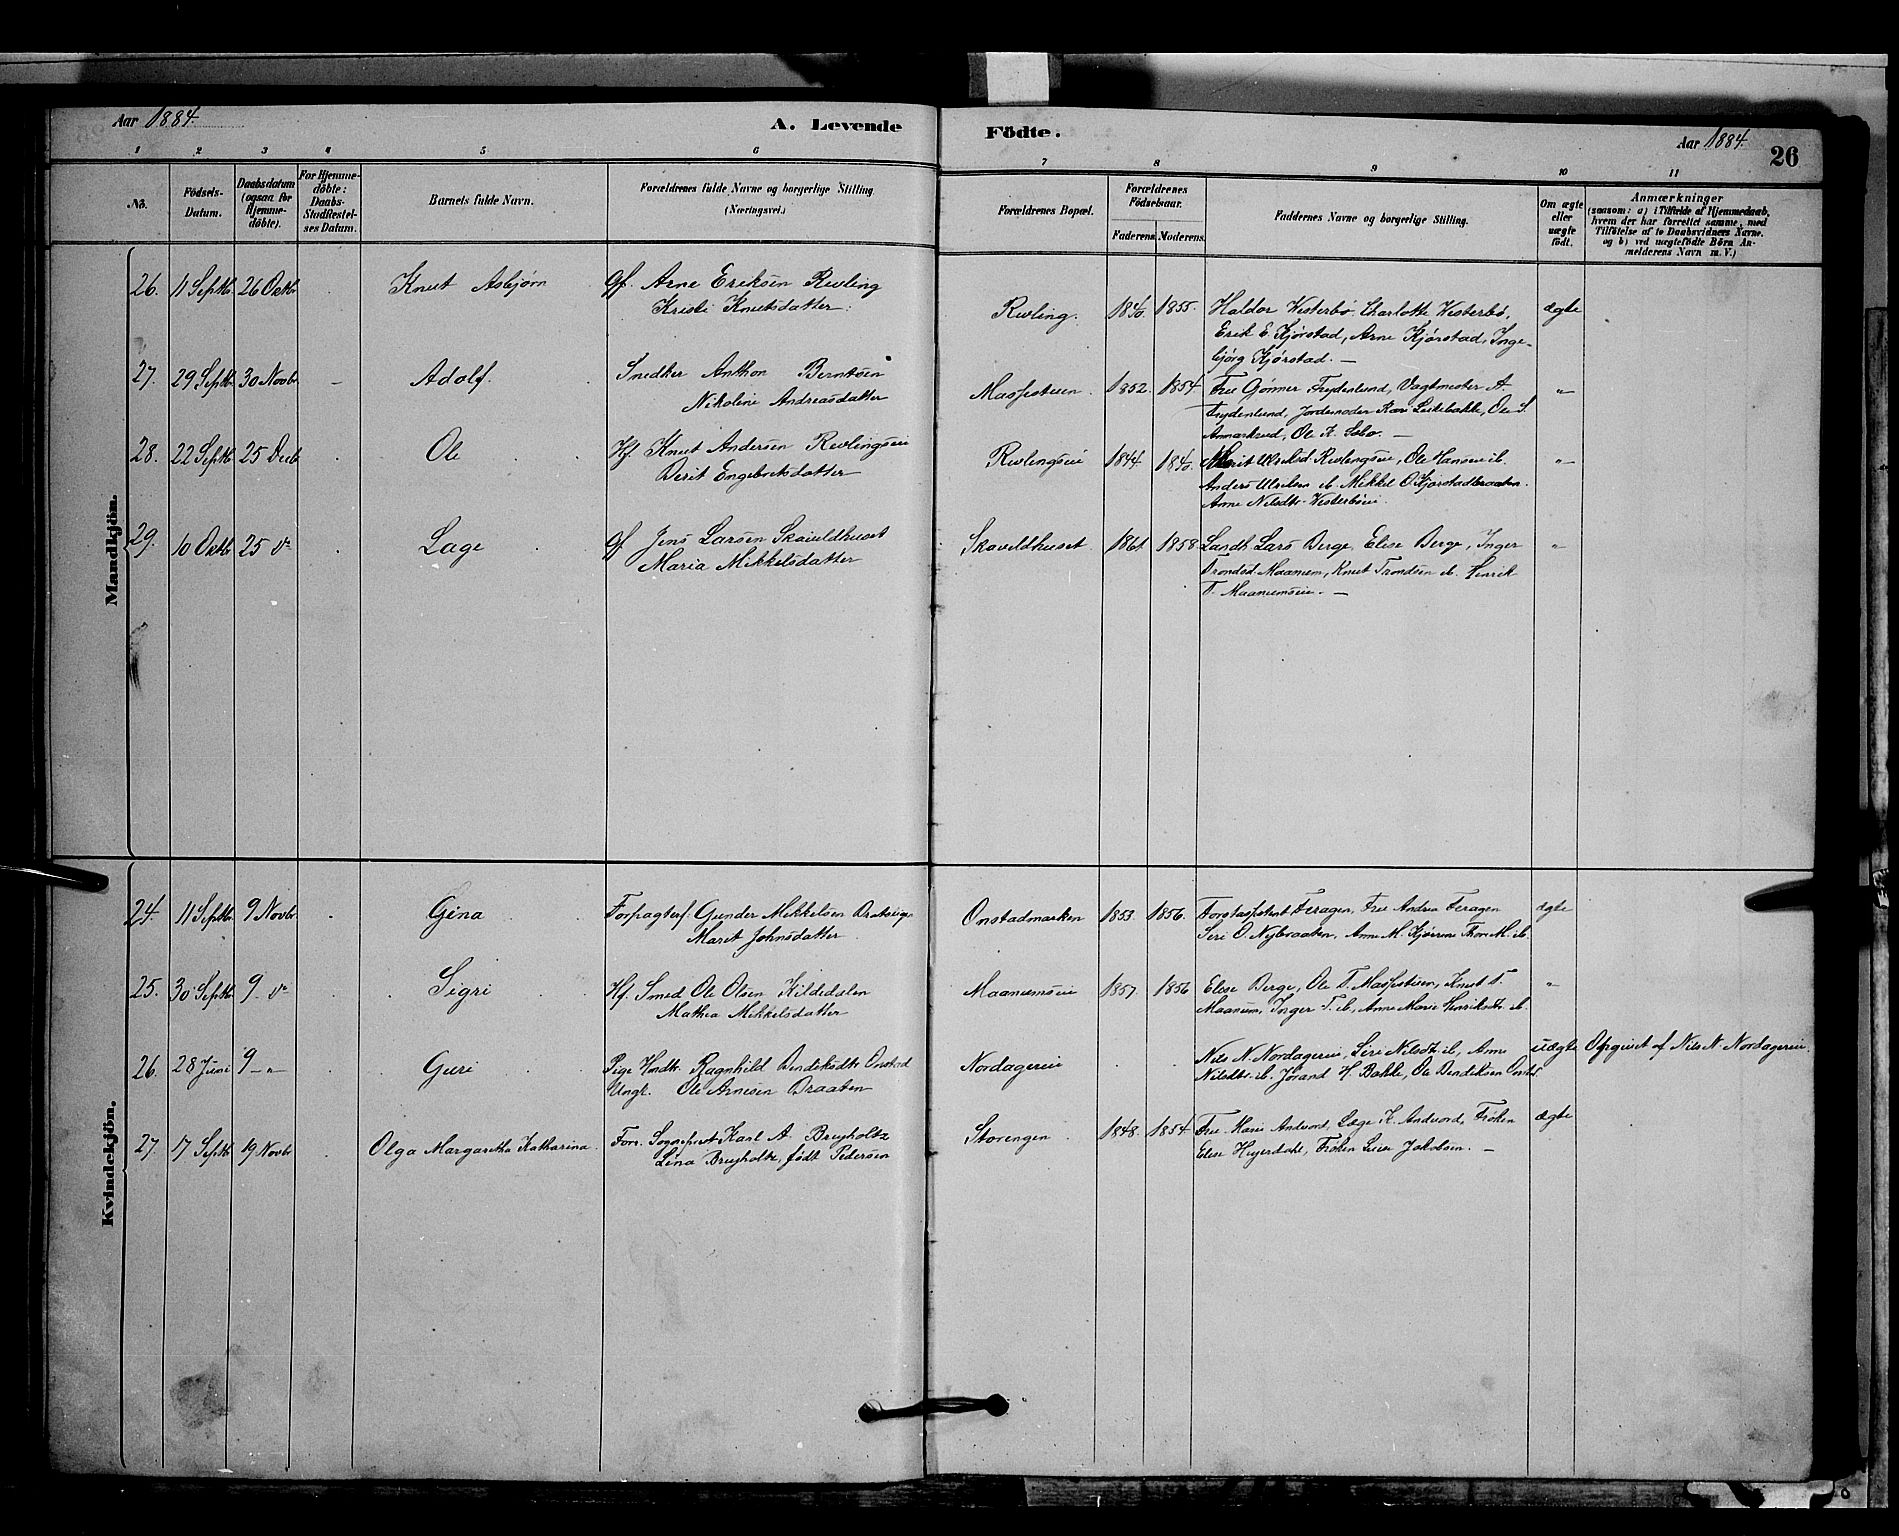 Aar 1884.
A. Levende
Födte.
Aar 1884.
26
1 2 3 4 5 6 7 8 9 10 11
No.
Födsels-
Datum.
Daabsdatum
(ogsaa for
Hjemme-
döbte).
For Hjemme-
döbte:
Daabs-
Stadfestel-
ses Datum.
Barnets fulde Navn.
Forældrenes fulde Navne og borgerlige Stilling
(Næringsvei.)
Forældrenes Bopæl.
Forældrenes
Födselsaar.
Faderens. Moderens.
Faddernes Navne og borgerlige Stilling.
Om ægte
eller
uægte
født.
Anmærkninger
(saasom: a) i Tilfælde af Hjemmedaab,
hvem der har forrettet samme, med
Tilföielse af to Daabsvidners Navne.
og b) ved uægtefødte Börn An-
melderens Navn m. V.)
Mandkjön.
26. 11 Septbr 26 Oktbr Knut Asbjørn Gf. Arne Eriksen Revling
Kristi Knutsdatter.
Revling. 1840. 1855. Haldor Vesterbø, Charlotte Vesterbø, ægte
Erik E. Kjørstad, Arne Kjørstad, Inge-
björg Kjørstad. —
27. 29 Septbr 30 Novbr – Adolf. Snedker Anthon Berntsen
Nikoline Andreasdatter
1852. 1854. Fru Gönner Frydenlund, Vagtmester A. –"–
Frydenlund, Jordemoder Kari Listebakke, Ole S.
Ole K. —
28. 22 Septbr 25 Decb Ole Hf Knut Andersen Revlingseie
Berit Engebretsdatter
Revlingseie 1844 1840. Marit Ulriksd. Revlingseie, Ole Hansen ib. –"–
Anders Ulriksen ib. Mikkel O Kjørstadbraaten.
Anne Nilsdtr. Vesterbøeie.
29. 10 Oktbr 25 Lage Gf Jens Larsen
Maria Mikkelsdatter
Skaveldhuset 1861 1858 Landh. Lars Berge, Elise Berge, Inger "
Trondsd. Maanum, Knut Trondsen ib. Henrik
T. Maanumseie. —
Kvindekjön.
24. 11 Septbr 9 Novbr Gina Forpagterf Gunder Mikkelsen
Marit Johnsdatter
Onstadmarken 1853. 1856. Forstassistent Feragen, Fru Andrea Feragen ægte
Siri O. Nybraaten, Anne M. Thor M. ib.
25. 30 Septbr 9 Sigri Hf. Smed Ole Olsen Kildedalen
Mathea Mikkelsdatter
Maanumseie 1857. 1856 Elise Berge, Ole T. Knut T. "
Maanum, Inger T. ib., Anne Marie Henriksdtr. ib.
26. 28 Juni 9 –"– Guri Pige Ragnhild Bendiksdtr Onstad
Ungk. Ole Arnesen Braaten
Nordagereie Nils N. Nordagereie, Siri Nilsdtr. ib., Anne uægte Opgivet af Nils N. Nordagereie.
Nilsdtr. ib. Jörand H. Bakke, Ole Bendiksen Onstd.
27. 17 Septbr 19 Novbr Olga Margaretha Katharina. Forr. Sogneprest Karl A. Bruyholtz
Lina Bruyholtz, født Pedersen
Storengen 1848. 1854. Fru Marie Andvord, Læge K. Andvord, Frøken ægte
Elise Heyerdahl, Frøken Jakobsen. —